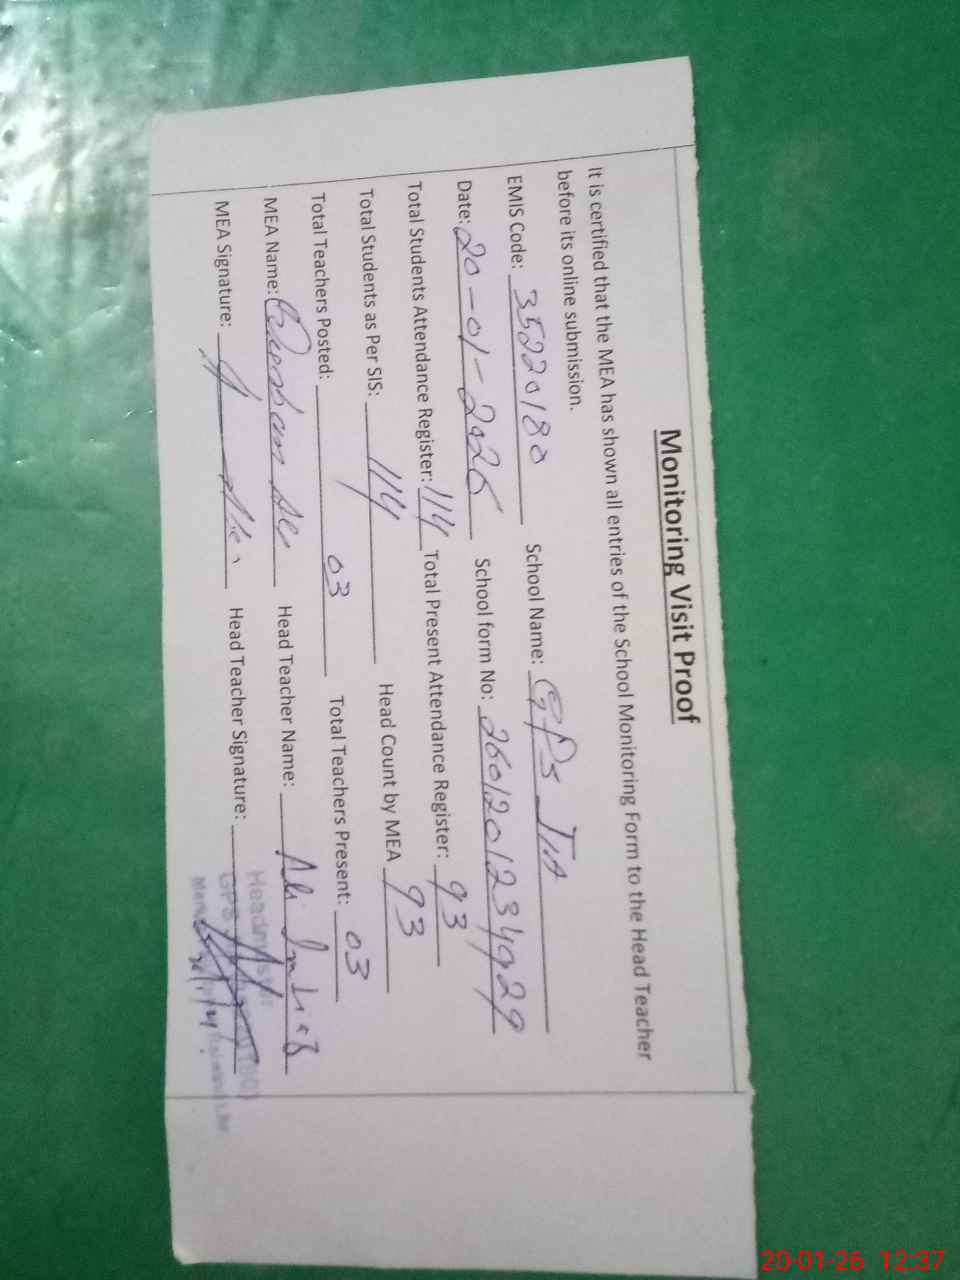 Monitoring Visit Proof
It is certified that the MEA has shown all entries of the School Monitoring Form to the Head Teacher
before its online submission.
EMIS Code: 35220180 School Name: GPS Jia
Date: 20-01-2026 School form No: 2601201234929
Total Students Attendance Register: 114 Total Present Attendance Register: 93
Total Students as Per SIS: 114 Head Count by MEA 93
Total Teachers Posted: 03 Total Teachers Present: 03
MEA Name: Head Teacher Name: Ali
MEA Signature: Head Teacher Signature:
Headmaster
GPS
20-01-26 12:37